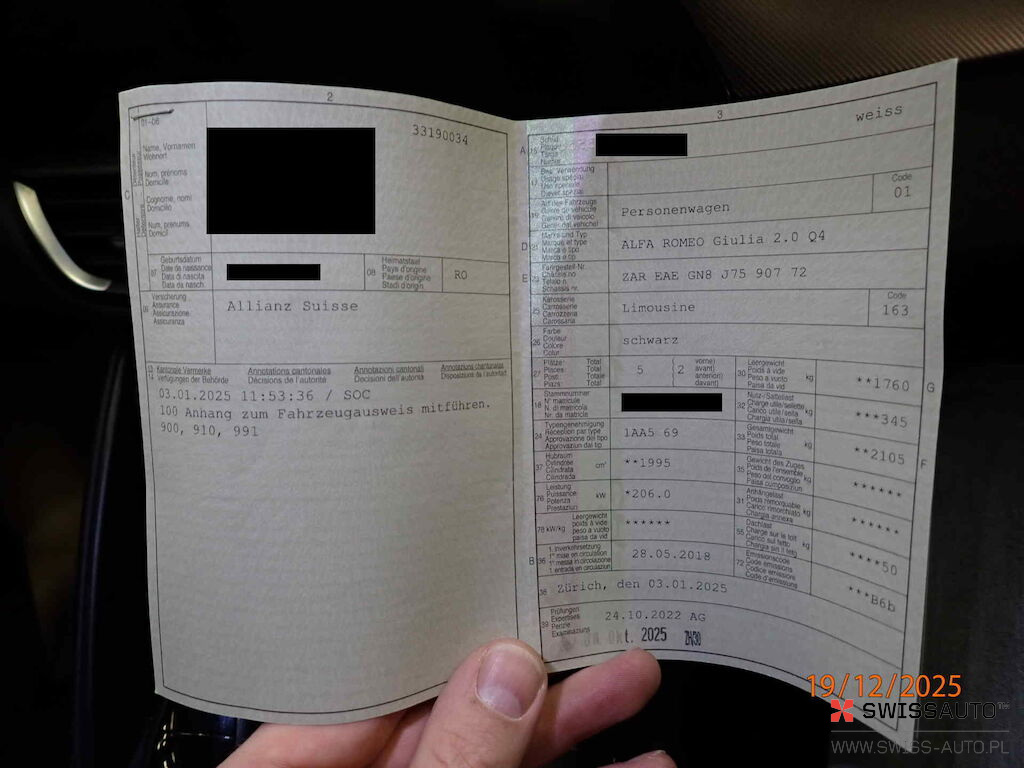 2
33190034
01-06
Name, Vornamen
Wohnort
Nom, prénoms
Domicile
Cognome, nomi
Domicilio
Num, prenums
Domicil
C
07
Geburtsdatum
Date de naissance
Data di nascita
Data da nasch.
08
Heimatstaat
Pays d'origine
Paese d'origine
Stadi d'origin
RO
09
Versicherung
Assurance
Assicurazione
Assicuranza
Allianz Suisse
Kantonale Vermerke
Verfügungen der Behörde
Annotations cantonales
Décisions de l'autorité
Annotazioni cantonali
Decisioni dell'autorità
Annotaziuns chantunalas
Disposiziuns da l'autoritad
03.01.2025 11:53:36 / SOC
100 Anhang zum Fahrzeugausweis mitführen.
900, 910, 991
3
weiss
A 15
Schild
Plaque
Targa
Numer
17
Bes. Verwendung
Usage spécial
Uso speciale
Diever spezial
Code
01
19
Art des Fahrzeugs
Genre de véhicule
Genere di veicolo
Gener dal vehichel
Personenwagen
D 21
Marke und Typ
Marque et type
Marca e tipo
Marca e tip
ALFA ROMEO Giulia 2.0 Q4
E 23
Fahrgestell-Nr.
Châssis no
Telaio n.
Schassis nr.
ZAR EAE GN8 J75 907 72
25
Karosserie
Carrosserie
Carrozzeria
Carossaria
Limousine
Code
163
26
Farbe
Couleur
Colore
Colur
schwarz
27
Plätze: Total
Places: Total
Posti: Totale
Plazs: Total
5
( 2 vorne)
avant)
anteriori)
davant)
30
Leergewicht
Poids à vide
Peso a vuoto
Paisa da vid
kg
**1760
G
18
Stammnummer
N° matricule
N. di matricola
Nr. da matricla
32
Nutz-/Sattellast
Charge utile/sellette
Carico utile/sella
Chargia utila/sella
kg
***345
24
Typengenehmigung
Réception par type
Approvazione del tipo
Approvaziun dal tip
1AA5 69
33
Gesamtgewicht
Poids total
Peso totale
Paisa totala
kg
**2105
F
37
Hubraum
Cylindrée
Cilindrata
Cilindrada
cm³
**1995
35
Gewicht des Zuges
Poids de l'ensemble
Peso del convoglio
Paisa cumposiziun
kg
******
76
Leistung
Puissance
Potenza
Prestaziun
kW
*206.0
31
Anhängelast
Poids remorquable
Carico rimorchiato
Chargia annexa
kg
******
78 kW/kg
Leergewicht
poids à vide
peso a vuoto
paisa da vid
******
55
Dachlast
Charge sur le toit
Carico sul tetto
Chargia sin il tetg
kg
****50
B 36
1. Inverkehrsetzung
1re mise en circulation
1a messa in circolazione
1. entrada en circulaziun
28.05.2018
72
Emissionscode
Code émissions
Codice emissioni
Code d'emissiuns
***B6b
38
Zürich, den 03.01.2025
39
Prüfungen
Expertises
Perizie
Examinaziuns
24.10.2022 AG
Okt. 2025 ZH30
19/12/2025
SWISSAUTO
WWW.SWISS-AUTO.PL